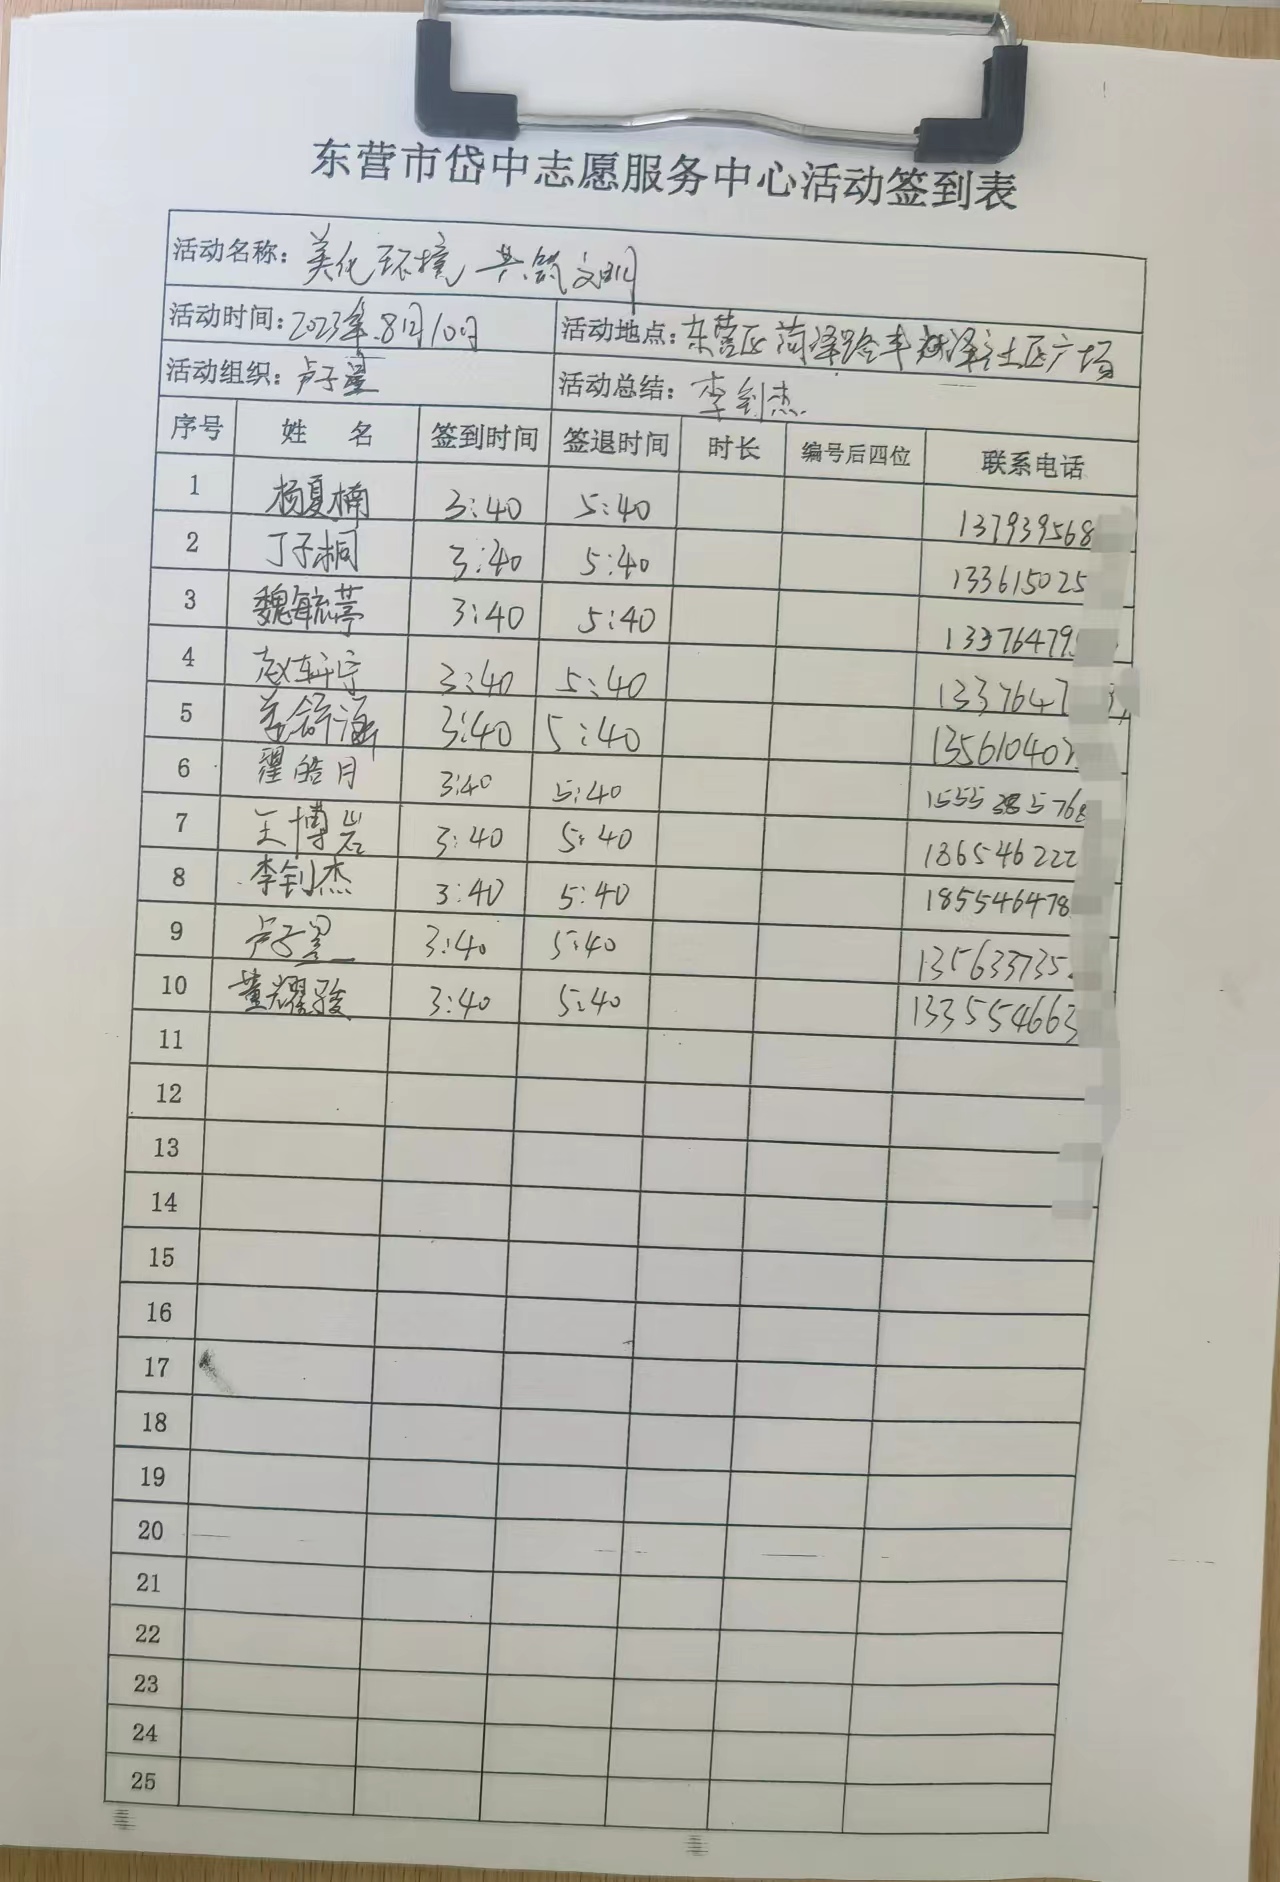 东营市岱中志愿服务中心活动签到表
活动名称：美化环境 共筑文明
活动时间：2023年.8月10日 活动地点：东营区菏泽路丰泽社区广场
活动组织：卢子墨 活动总结：李钊杰
序号 姓 名 签到时间 签退时间 时长 编号后四位 联系电话
1 杨夏楠 3:40 5:40 137939568
2 丁子桐 3:40 5:40 133615025
3 魏毓葶 3:40 5:40 13376479
4 赵轩宁 3:40 5:40 1337647
5 舒涵 3:40 5:40 13561040
6 翟皓月 3:40 5:40 1555385768
7 王博岩 3:40 5:40 186546222
8 李钊杰 3:40 5:40 185546478
9 卢子墨 3:40 5:40 135633735
10 董耀骏 3:40 5:40 1335554663
11
12
13
14
15
16
17
18
19
20
21
22
23
24
25